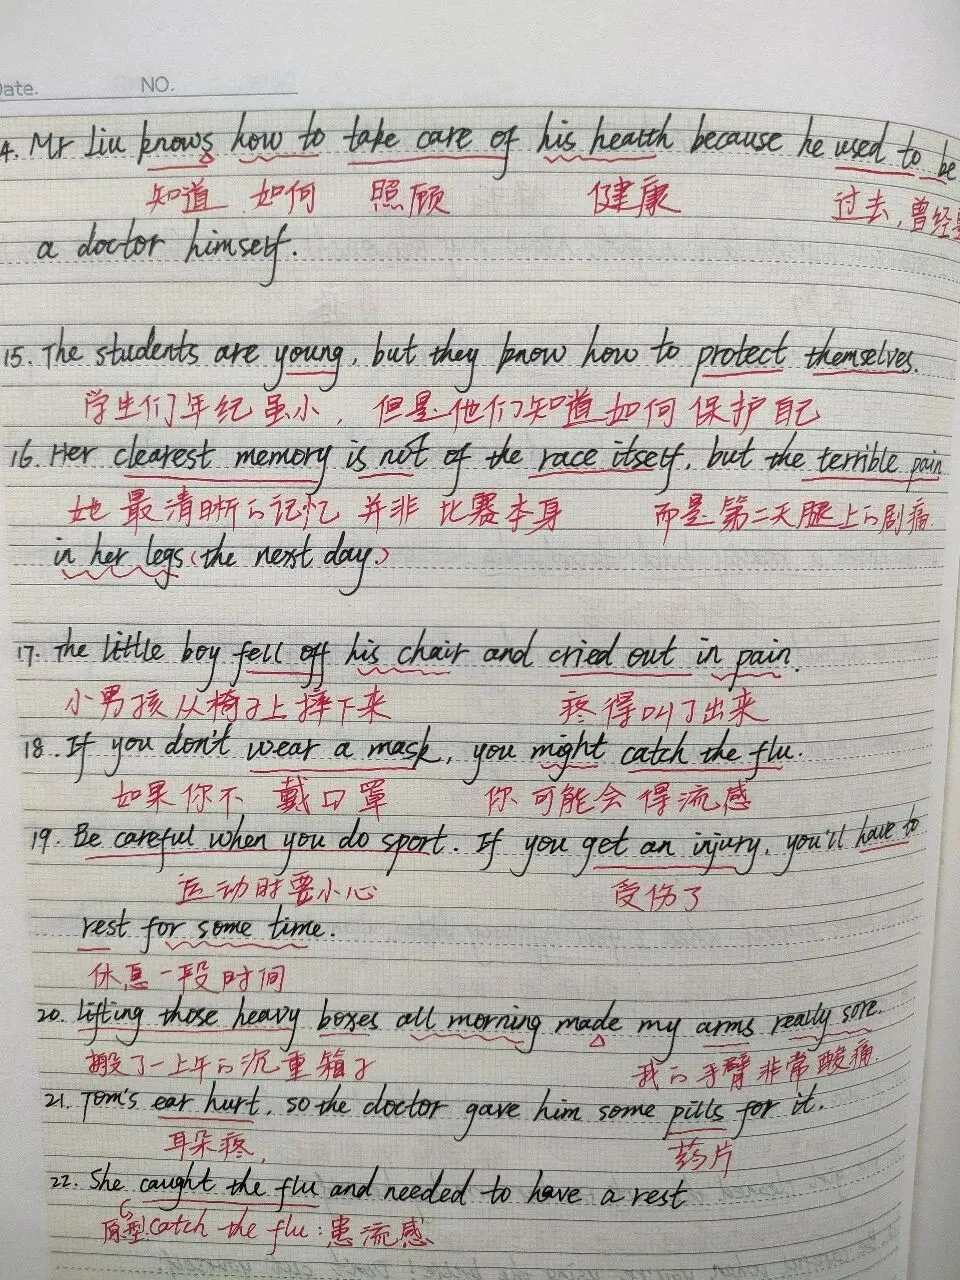 Date. NO.
4. Mr Liu knows how to take care of his health because he used to be
知道 如何 照顾 健康 过去,曾经是
a doctor himself.
15. The students are young, but they know how to protect themselves.
学生们年纪虽小, 但是他们知道如何保护自己
16. Her clearest memory is not of the race itself, but the terrible pain
她最清晰的记忆 并非 比赛本身 而是第二天腿上的剧痛
in her legs (the next day.)
17. The little boy fell off his chair and cried out in pain.
小男孩从椅子上摔下来 疼得叫了出来
18. If you don't wear a mask, you might catch the flu.
如果你不 戴口罩 你可能会得流感
19. Be careful when you do sport. If you get an injury, you'll have to
运动时要小心 受伤了
rest for some time.
休息一段时间
20. Lifting those heavy boxes all morning made my arms really sore.
搬了一上午的沉重箱子 我的手臂非常酸痛.
21. Tom's ear hurt, so the doctor gave him some pills for it.
耳朵疼, 药片
22. She caught the flu and needed to have a rest
原型: catch the flu: 患流感